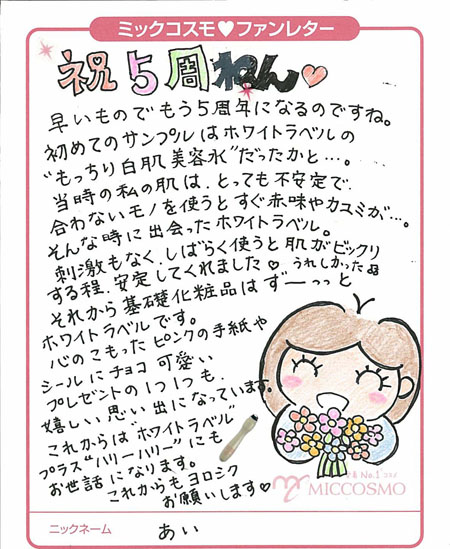 ミックコスモ♥ファンレター
祝5周ねん♡
早いものでもう5周年になるのですね。
初めてのサンプルはホワイトラベルの
"もっちり白肌美容水"だったかと…。
当時の私の肌は、とっても不安定で、
合わないモノを使うとすぐ赤味やカユミが…。
そんな時に出会ったホワイトラベル。
刺激もなく、しばらく使うと肌がビックリ
する程、安定してくれました♡うれしかった
それから基礎化粧品はずーっっと
ホワイトラベルです。
心のこもったピンクの手紙や
シールにチョコ可愛い
プレゼントの1つ1つも、
嬉しい思い出になっています。
これからは"ホワイトラベル"
プラス"ハリーハリー"にも
お世話になります。
これからもヨロシク
お願いします♡
No.1
MICCOSMO
ニックネーム
あい